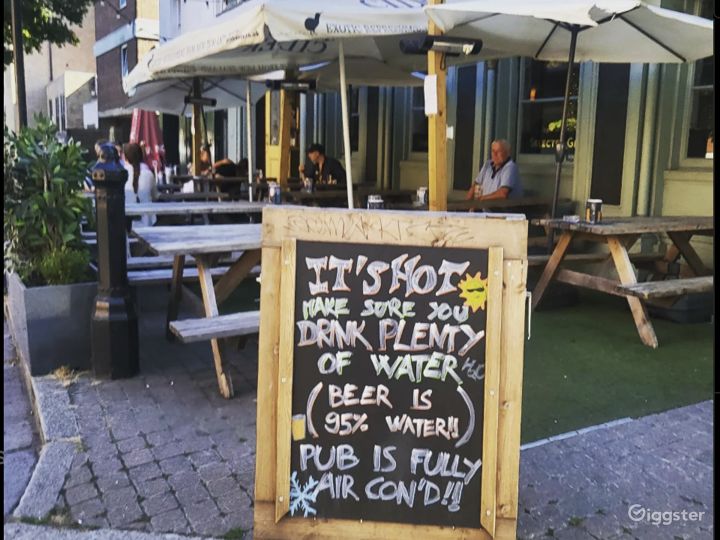 EXOTIC REFRESHMENT
IT'S HOT
MAKE SURE YOU
DRINK PLENTY
OF WATER H2O
(BEER IS
95% WATER!!)
PUB IS FULLY
AIR CON'D!!
Giggster